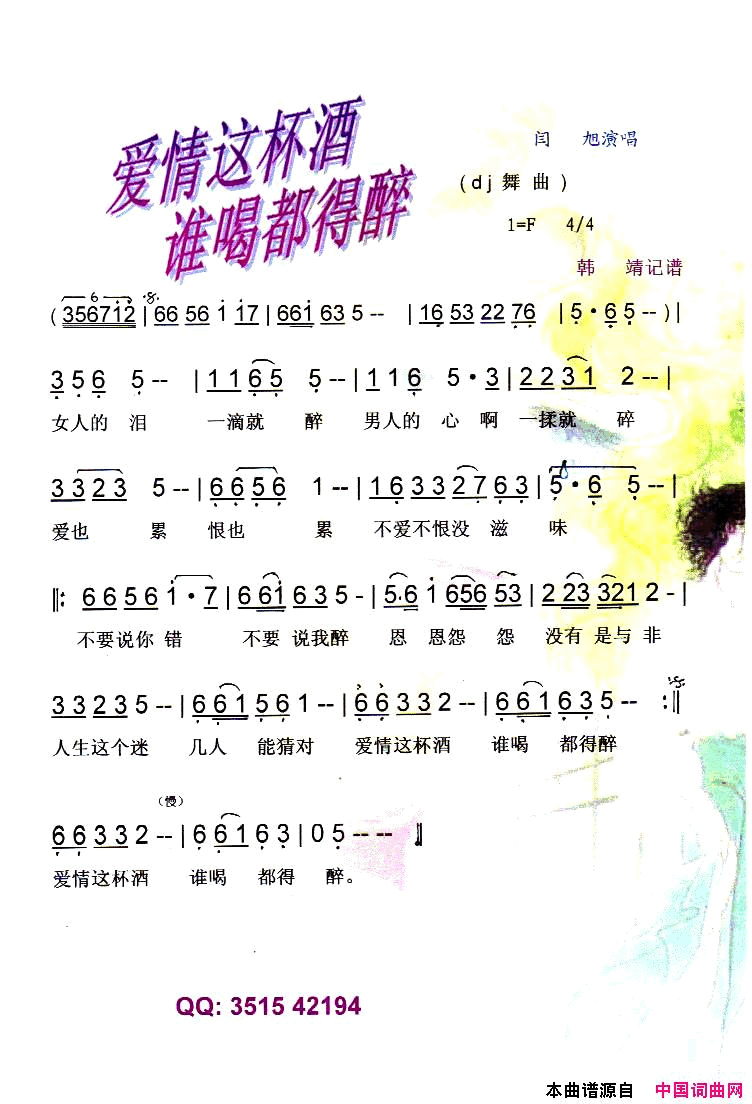 爱情这杯酒
谁喝都得醉
闫 旭演唱
(dj舞曲)
1=F 4/4
韩 靖记谱
(356712|66 56 1 17|661 63 5 -- |16 53 22 76 |5·6 5--)|
3 5 6 5 -- |1 1 6 5 5 -- |1 1 6 5·3|2 2 3 1 2 --|
女人的 泪 一滴就 醉 男人的 心 啊 一揉就 碎
3 3 2 3 5 --|6 6 5 6 1 --|1 6 3 3 2 7 6 3|5·6 5 --|
爱也 累 恨也 累 不爱不恨没 滋 味
‖: 6 6 5 6 1·7|6 6 1 6 3 5 -|5·6 1 656 53|2 23 3321 2 -|
不要说你 错 不要 说我醉 恩 恩怨 怨 没有 是与 非
3 3 2 3 5 --|6 6 1 5 6 1 --|6 6 3 3 2 --|6 6 1 6 3 5 -- :‖
人生这个迷 几人 能猜对 爱情这杯酒 谁喝 都得醉
(慢)
6 6 3 3 2 --|6 6 1 6 3|0 5 -- -- ‖
爱情这杯酒 谁喝 都得 醉。
QQ: 3515 42194
本曲谱源自 中国词曲网